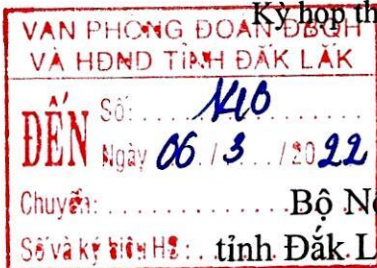 Kỳ họp th
VĂN PHÒNG ĐOÀN ĐBQH
VÀ HĐND TỈNH ĐẮK LẮK
ĐẾN
Số: ........
Ngày 06 / 3 ... / 20 22
Chuyển: ............ Bộ N
Số và ký hiệu HS: .. tỉnh Đắk L